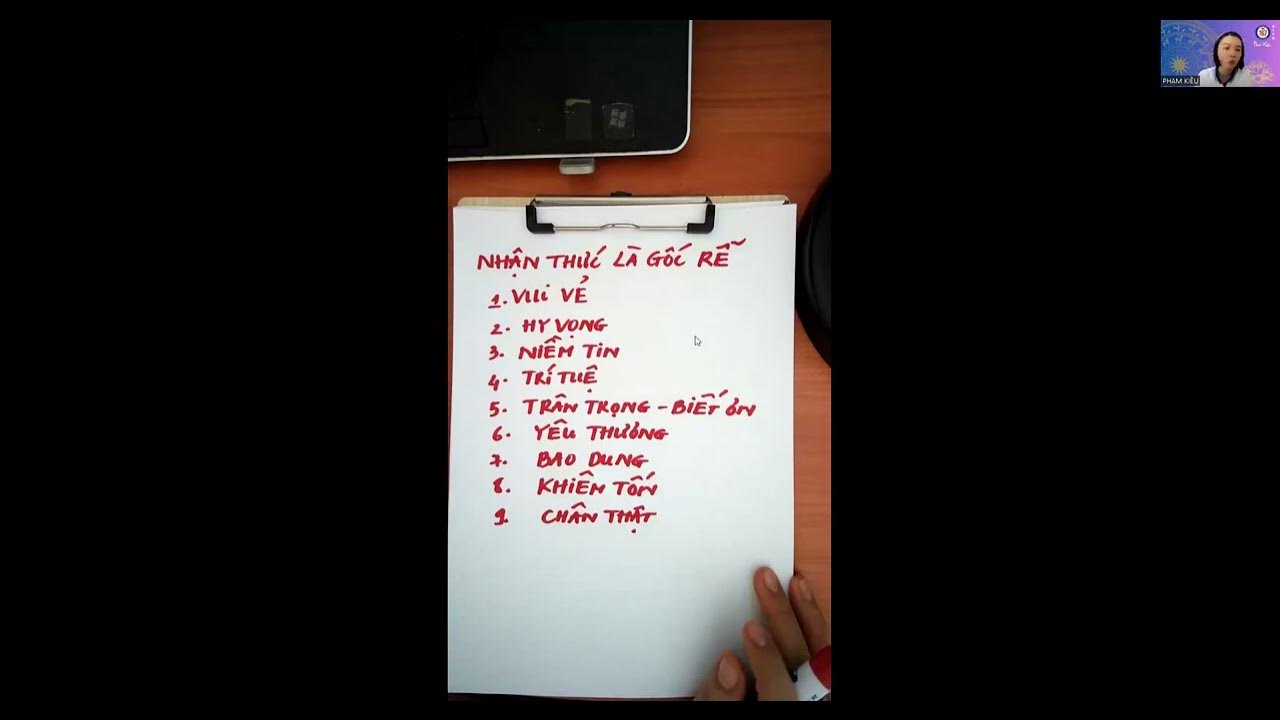 PHẠM KIỀU
NHẬN THỨC LÀ GỐC RỄ
1. VUI VẺ
2. HY VỌNG
3. NIỀM TIN
4. TRÍ TUỆ
5. TRÂN TRỌNG - BIẾT ƠN
6. YÊU THƯƠNG
7. BAO DUNG
8. KHIÊM TỐN
9. CHÂN THẬT